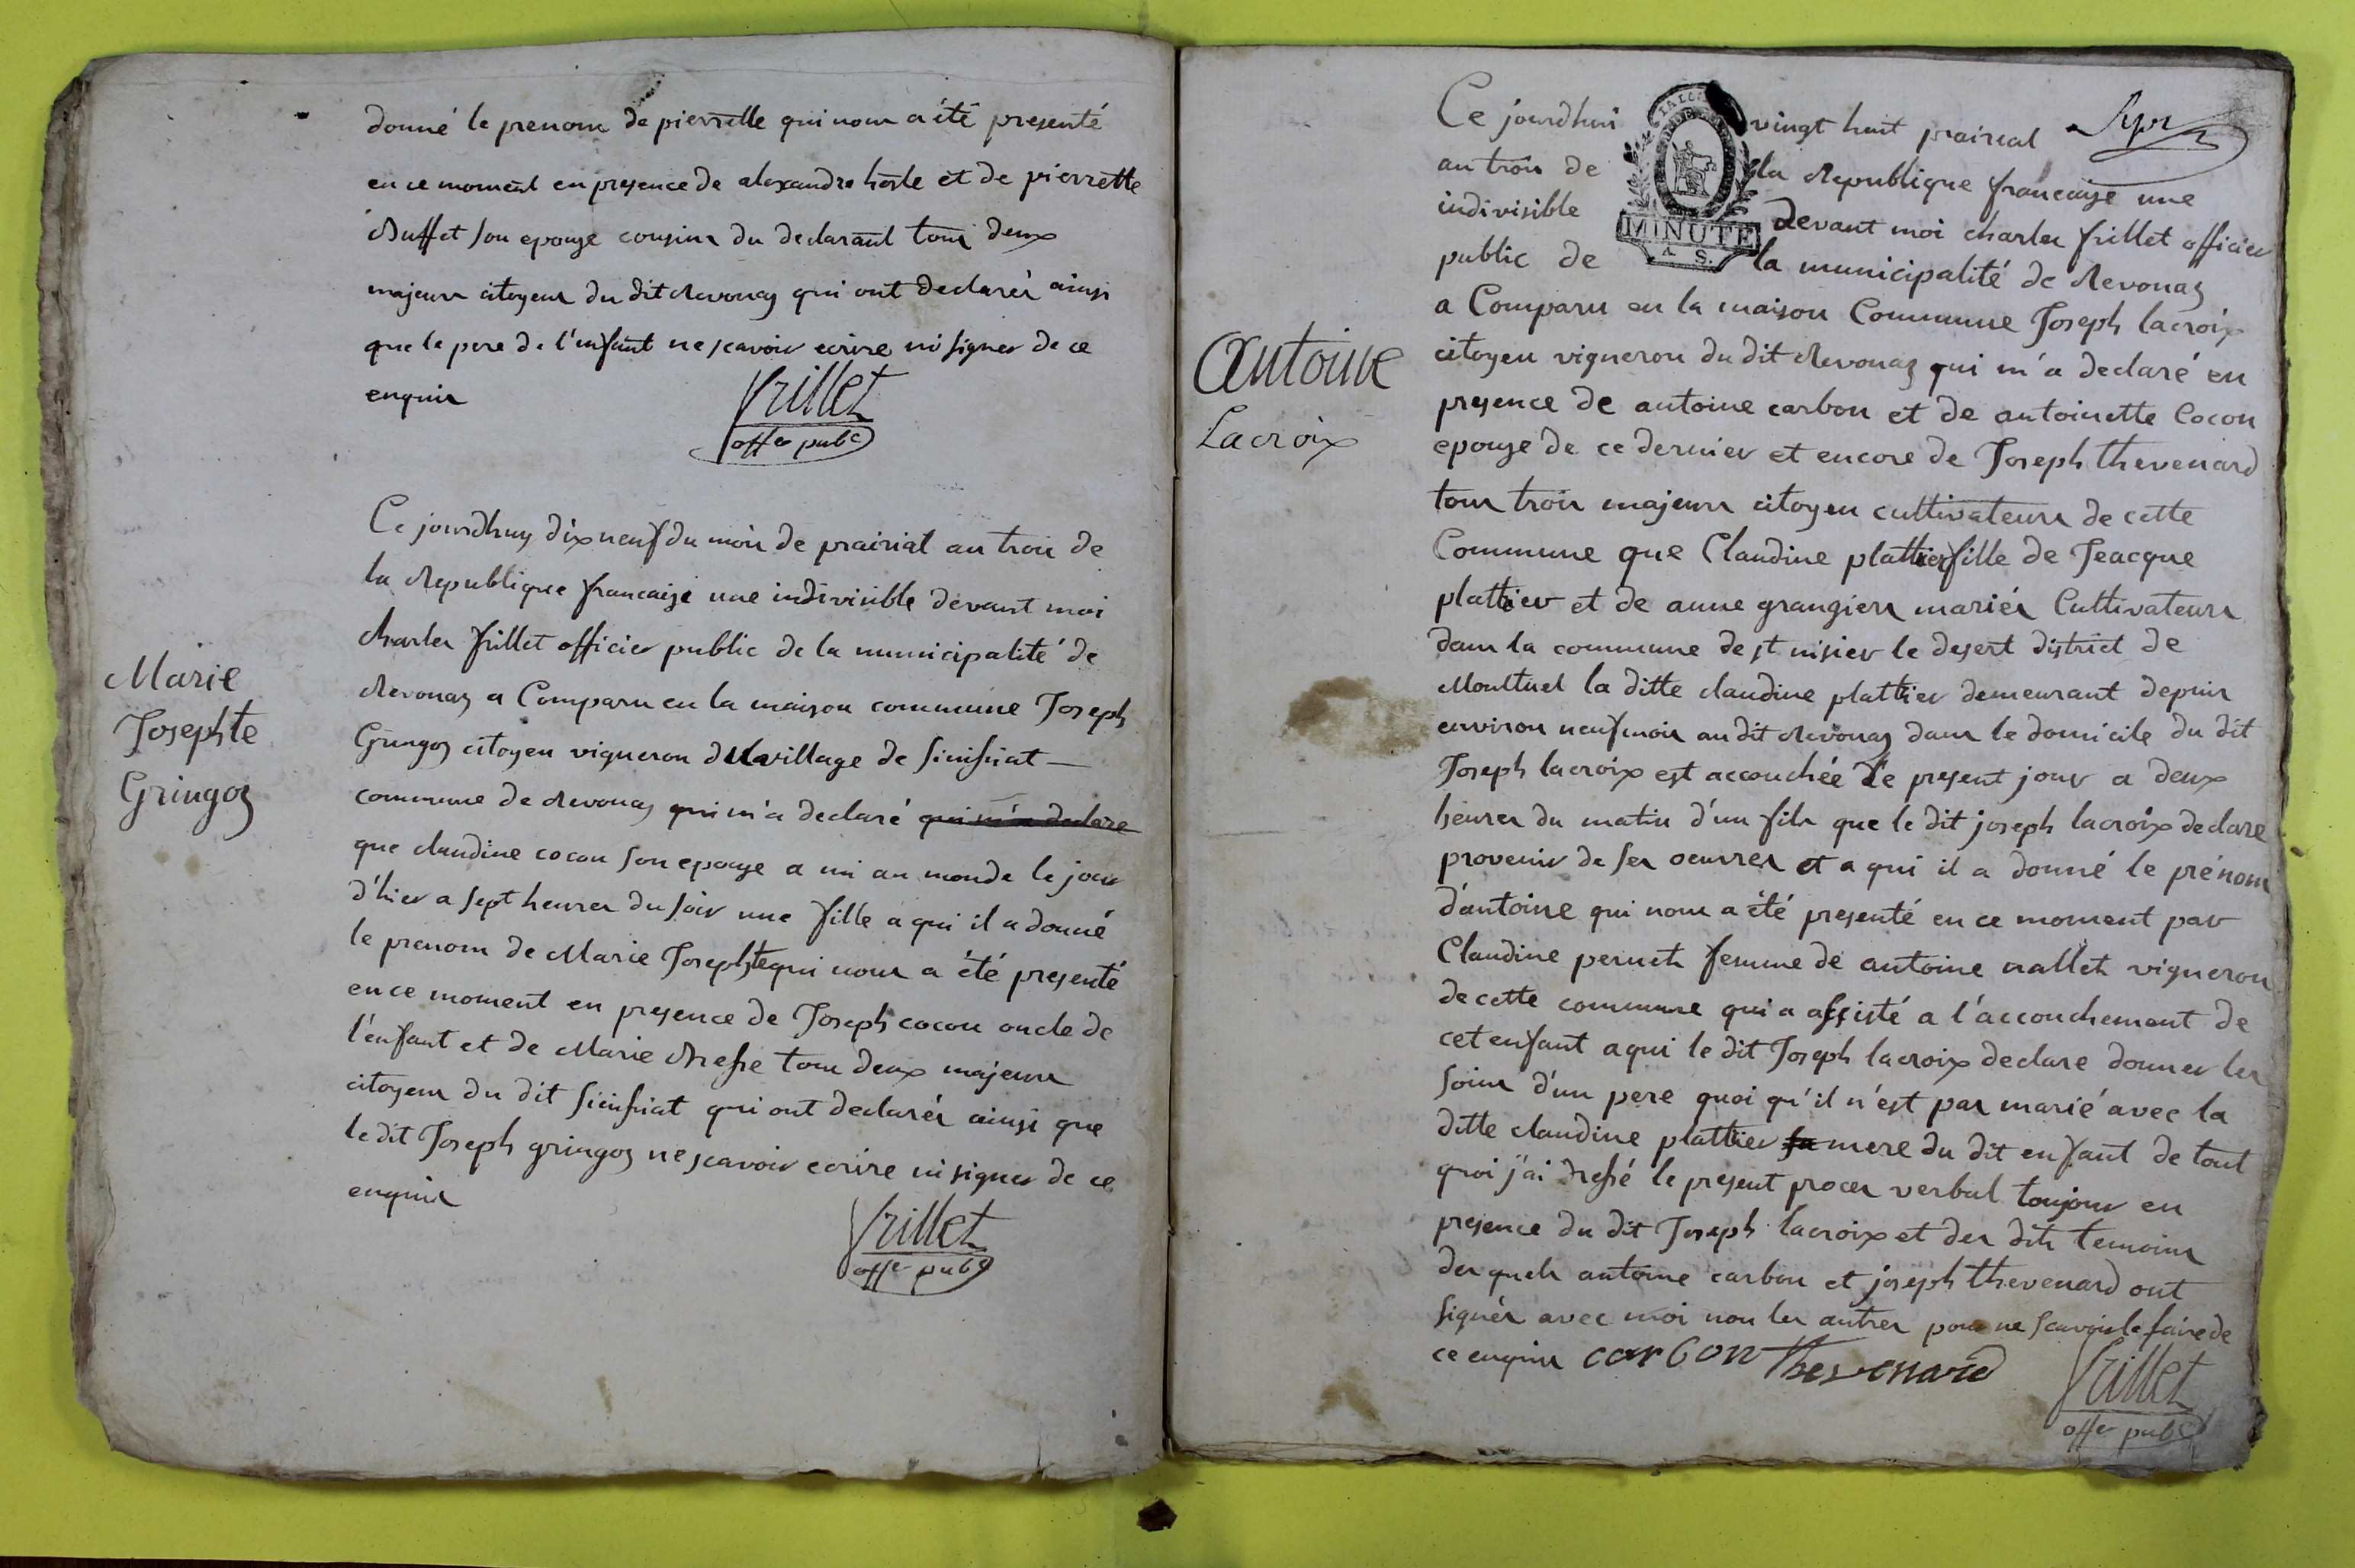 donné le prenom de pierrette qui nous a été presenté
en ce moment en presence de alexandre hoste et de pierrette
Buffet son epouse cousins du declarant tous deux
majeurs citoyens du dit Revonaz qui ont declarés ainsi
que le pere de l'enfant ne scavoir ecrire ni signer de ce
enquis
frillet
offer pubc
Marie
Josephte
Gringoz
Ce jourdhuy dix neuf du mois de prairial an trois de
la Republique francaise une indivisible devant moi
charles frillet officier public de la municipalité de
Revonaz a Comparu en la maison commune Joseph
Gringoz citoyen vigneron du village de Sinissiat
commune de Revonaz qui m'a declaré qui m'a declare
que claudine cocon son epouse a mis au monde le jour
d'hier a sept heures du soir une fille a qui il a donné
le prenom de Marie Josephte qui nous a été presenté
en ce moment en presence de Joseph cocon oncle de
l'enfant et de Marie tous deux majeurs
citoyens du dit Sinissiat qui ont declarés ainsi que
le dit Joseph gringoz ne scavoir ecrire ni signer de ce
enquis
frillet
offer pubc
Ce jourdhui vingt huit prairial
an trois de la Republique francaise une
indivisible devant moi charles frillet officier
public de la municipalité de Revonaz
MINUTE
A S.
Antoine
Lacroix
a Comparu en la maison Commune Joseph lacroix
citoyen vigneron du dit Revonaz qui m'a declaré en
presence de antoine carbon et de antoinette Cocon
epouse de ce dernier et encore de Joseph thevenard
tous trois majeurs citoyen cultivateurs de cette
Commune que Claudine plattier fille de Jeacque
plattier et de anne grangiers mariés Cultivateurs
dans la commune de st nisier le desert district de
Montluel la ditte claudine plattier demeurant depuis
environ neuf mois au dit Revonaz dans le domicile du dit
Joseph lacroix est accouchée le present jour a deux
heures du matin d'un fils que le dit joseph lacroix declare
provenir de ses oeuvres et a qui il a donné le prénom
d'antoine qui nous a été presenté en ce moment par
Claudine femme de antoine vigneron
de cette commune qui a assisté a l'accouchement de
cet enfant a qui le dit Joseph lacroix declare donner les
soins d'un pere quoi qu'il n'est pas marié avec la
ditte claudine plattier sa mere du dit enfant de tout
quoi j'ai dressé le present procès verbal toujours en
presence du dit Joseph lacroix et des dits temoins
des quels antoine carbon et joseph thevenard ont
signés avec moi non les autres pour ne scavoir le faire de
ce enquis carbon thevenard
frillet
offer pubc